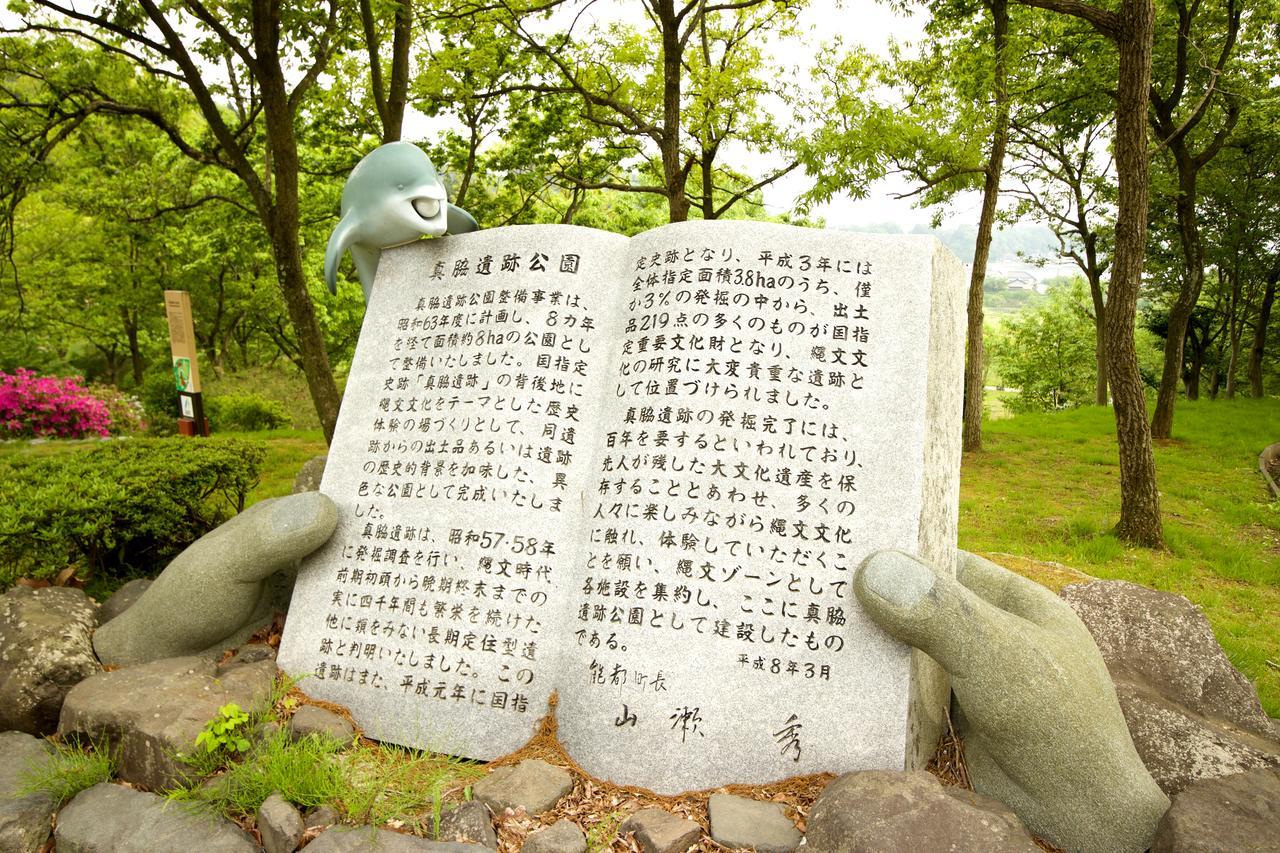 真脇遺跡公園
真脇遺跡公園整備事業は、
昭和63年度に計画し、8カ年
を経て面積約8haの公園とし
て整備いたしました。国指定
史跡「真脇遺跡」の背後地に
縄文文化をテーマとした歴史
体験の場づくりとして、同遺
跡からの出土品あるいは遺跡
の歴史的背景を加味した、異
色な公園として完成いたしま
した。
真脇遺跡は、昭和57・58年
に発掘調査を行い、縄文時代
前期初頭から晩期終末までの
実に四千年間も繁栄を続けた
他に類をみない長期定住型遺
跡と判明いたしました。この
遺跡はまた、平成元年に国指
定史跡となり、平成3年には
全体指定面積3.8haのうち、僅
か3%の発掘の中から、出土
品219点の多くのものが国指
定重要文化財となり、縄文文
化の研究に大変貴重な遺跡と
して位置づけられました。
真脇遺跡の発掘完了には、
百年を要するといわれており、
先人が残した大文化遺産を保
存することとあわせ、多くの
人々に楽しみながら縄文文化
に触れ、体験していただくこ
とを願い、縄文ゾーンとして
各施設を集約し、ここに真脇
遺跡公園として建設したもの
である。
平成8年3月
能都町長
山瀬 秀